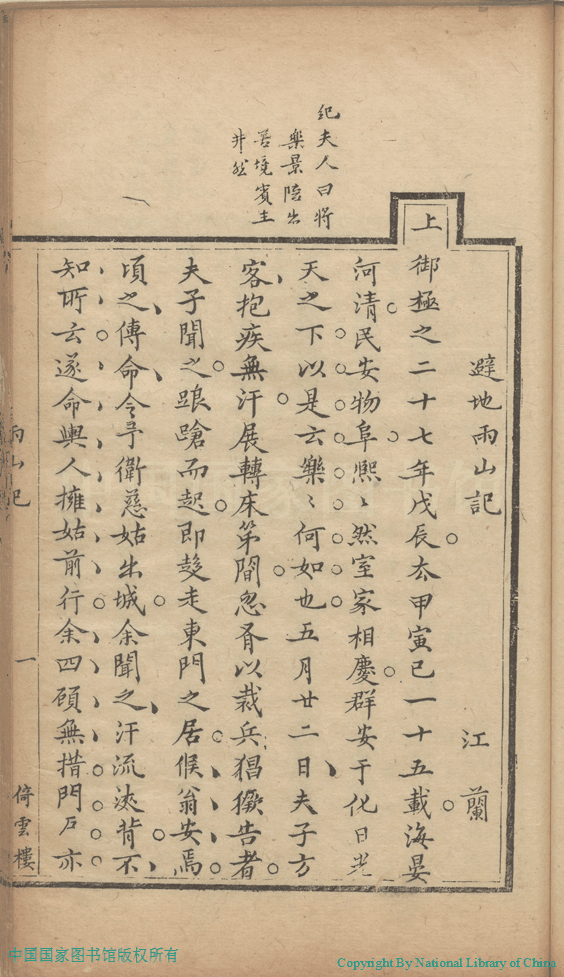 紀夫人曰將
樂景陪出
苦境賓主
井然
避地兩山記
江蘭
上
御極之二十七年戊辰太甲寅已一十五載海晏
河清民安物阜熙〻然室家相慶群安于化日光
天之下以是云樂〻何如也五月廿二日夫子方
客抱疾無汗展轉床笫間忽胥以裁兵猖獗告者
夫子聞之踉蹌而起即趍走東門之居候翁安焉
頃之傳命令予衛慈姑出城余聞之汗流浹背不
知所云遂命輿人擁姑前行余四顧無措門戶亦
兩山記
一
倚雲樓
中国国家图书馆版权所有
Copyright By National Library of China